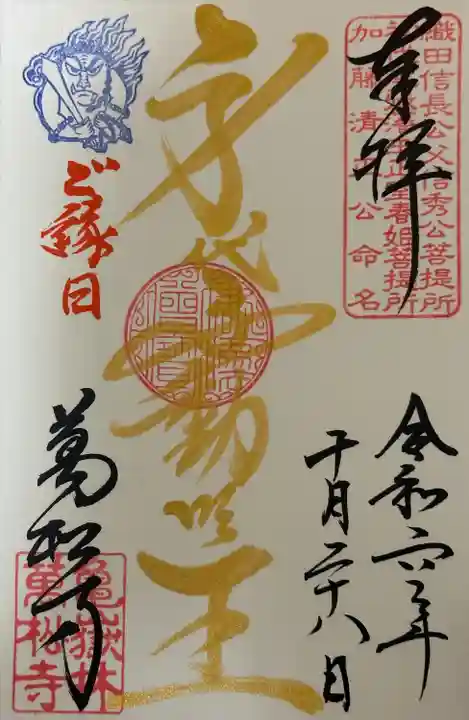 奉拝
織田信長公父信秀公菩提所
春姫菩提所
加藤清正公命名
令和六年
十月二十八日
身代不動明王
ご縁日
萬松寺
龜嶽林
萬松寺